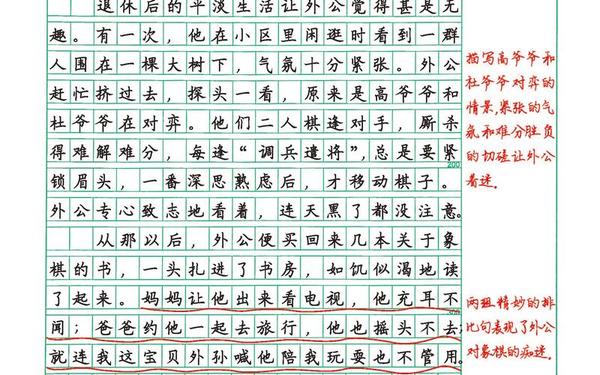 退休后的平淡生活让外公觉得甚是无
趣。有一次，他在小区里闲逛时看到一群
人围在一棵大树下，气氛十分紧张。外公
赶忙挤过去，探头一看，原来是高爷爷和
杜爷爷在对弈。他们二人棋逢对手，厮杀
得难解难分，每逢“调兵遣将”，总是要紧
200
锁眉头，一番深思熟虑后，才移动棋子。
外公专心致志地看着，连天黑了都没注意。
从那以后，外公便买回来几本关于象
棋的书，一头扎进了书房，如饥似渴地读
了起来。妈妈让他出来看电视，他充耳不
闻；爸爸约他一起去旅行，他也摇头不去
就连我这宝贝外孙喊他陪我玩耍也不管用。
描写高爷爷和
杜爷爷对弈的
情景，紧张的气
氛和难分胜负
的切磋让外公
着迷。
两组精妙的排
比句表现了外公
对象棋的痴迷。